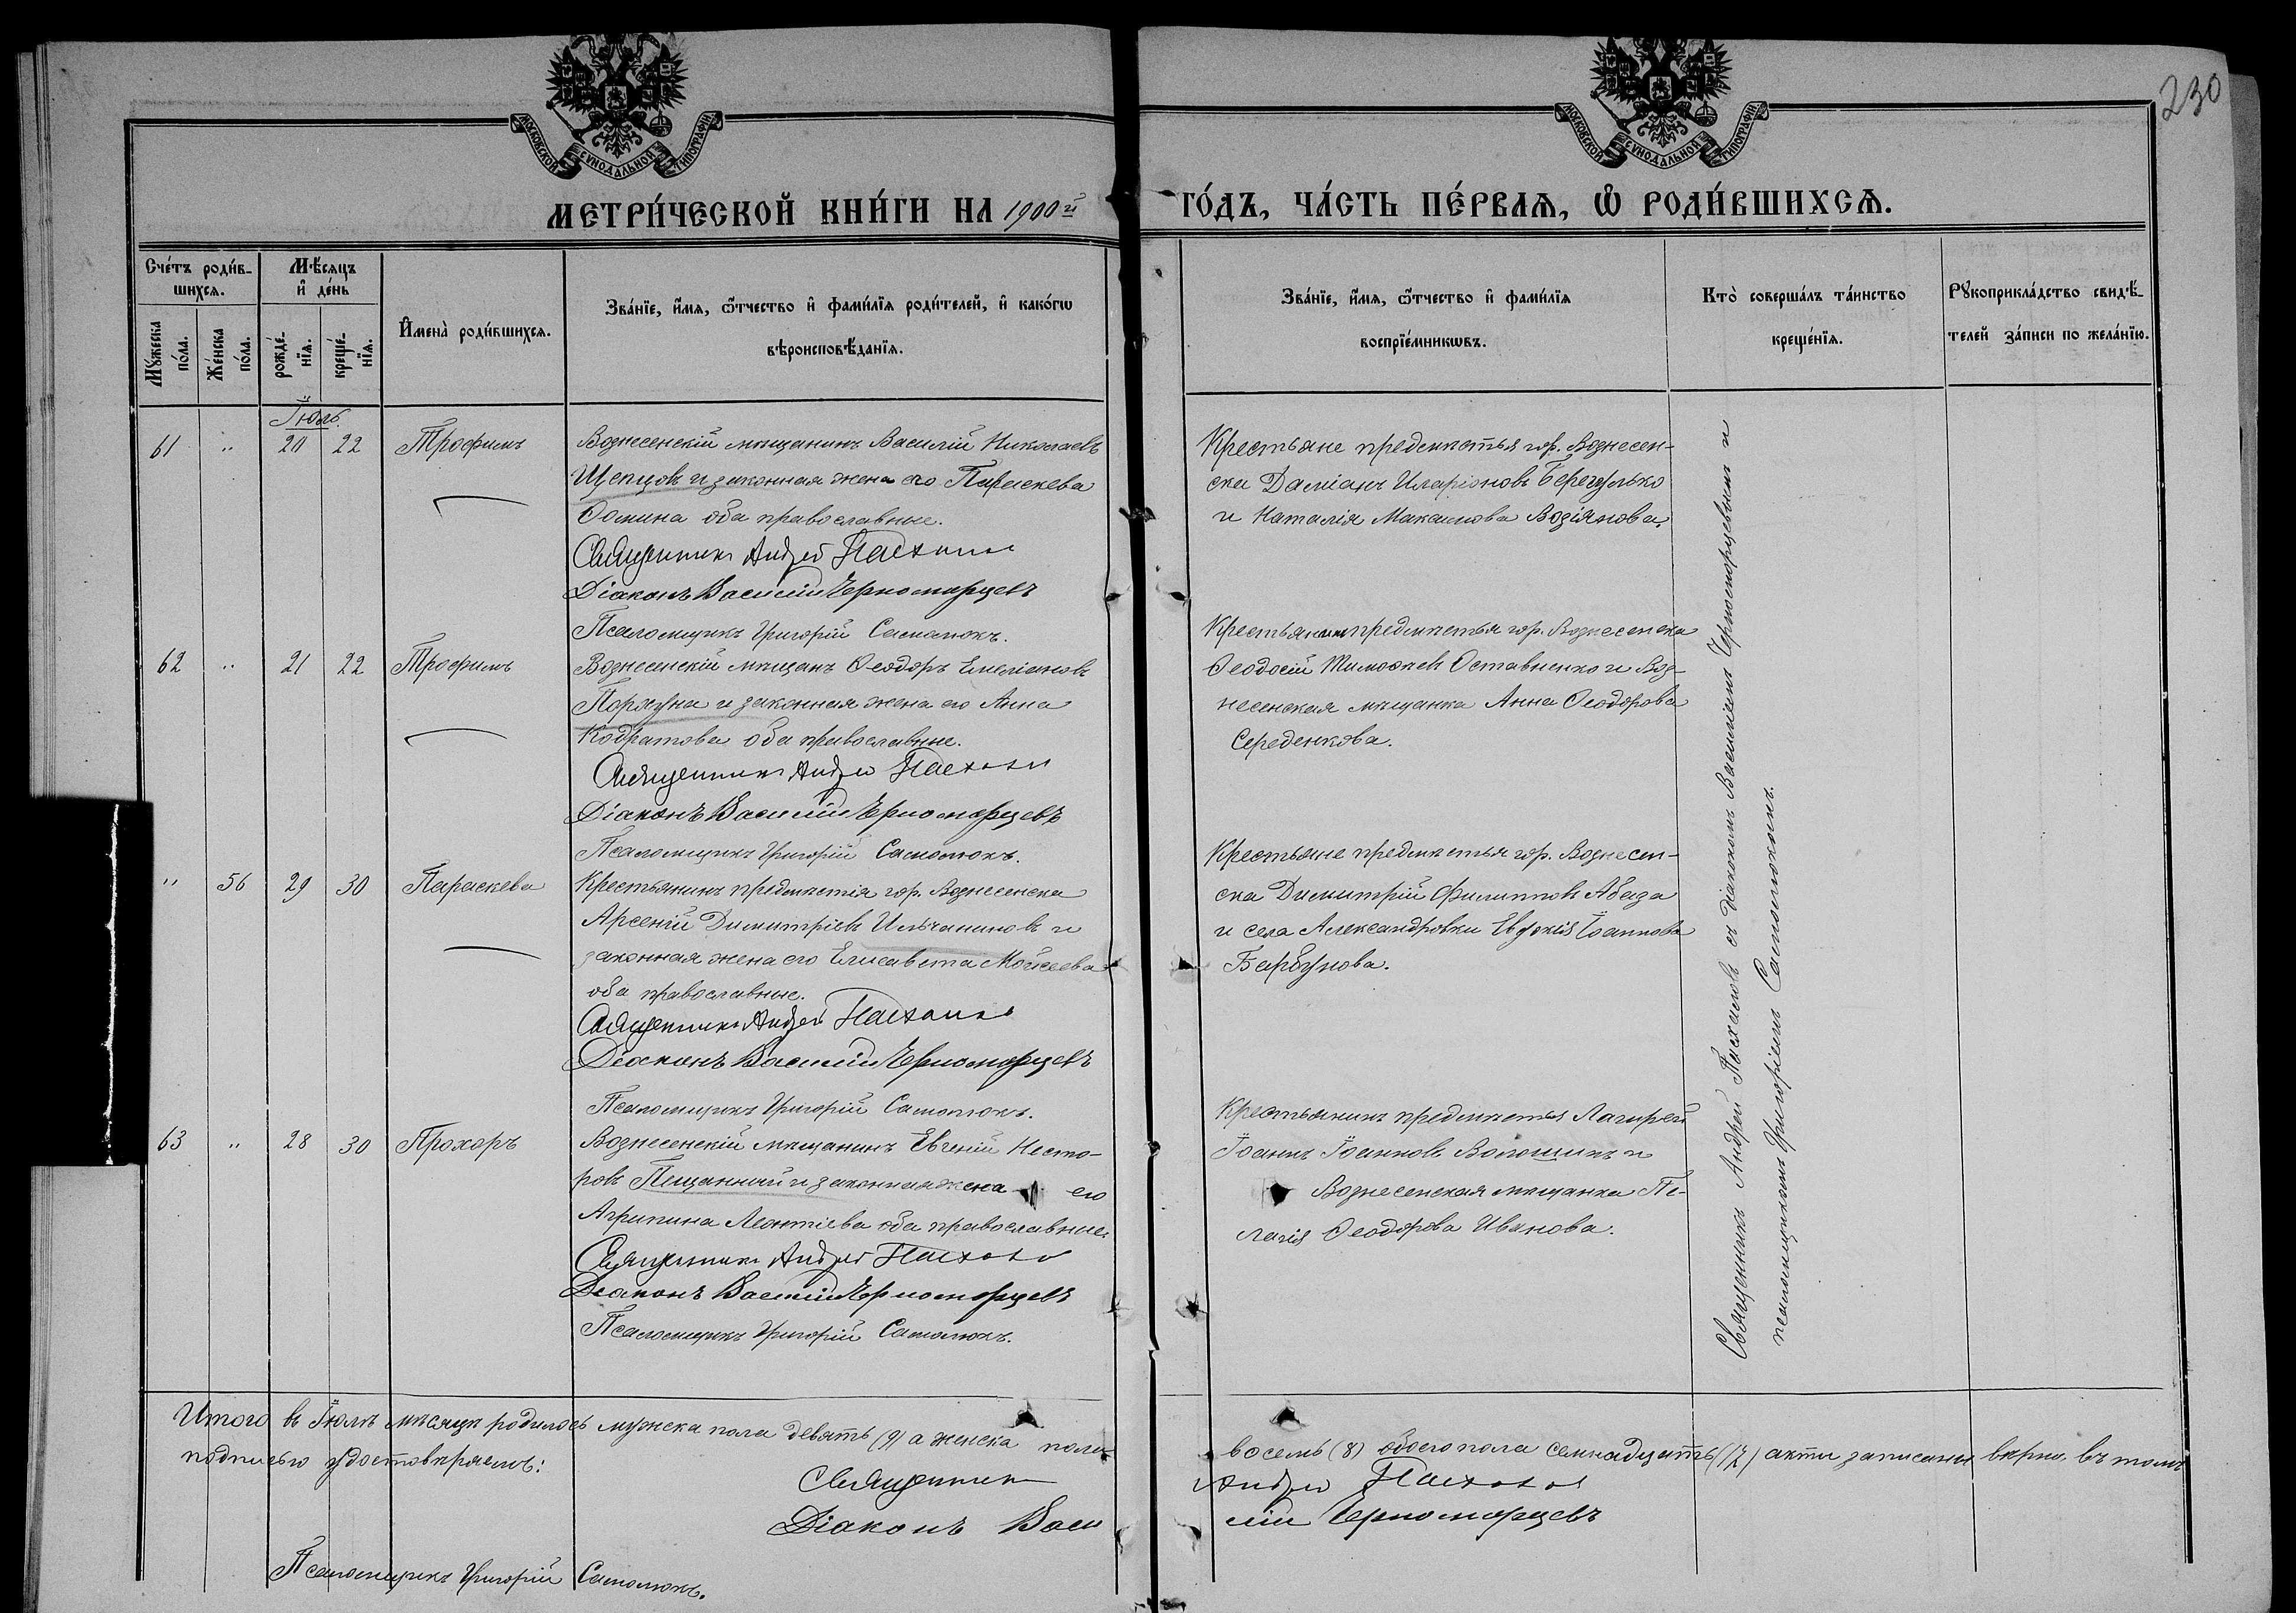 230
МОСКОВСКОЙ СѴНОДАЛЬНОЙ ТИПОГРАФІИ
МОСКОВСКОЙ СѴНОДАЛЬНОЙ ТИПОГРАФІИ
МЕТРИ́ЧЕСКОЙ КНИ́ГИ НА 1900й
ГО́ДЪ, ЧА́СТЬ ПЕ́РВАѦ, Ѡ҆ РОДИ́ВШИХСѦ.
Сче́тъ роди́в-
шихсѧ.
Мꙋжеска
по́ла.
Же́нска
по́ла.
Мѣ́сѧцъ
и҆ де́нь
рожде́-
нїѧ.
креще́-
нїѧ.
И҆мена̀ роди́вшихсѧ.
Зва́нїе, и҆́мѧ, ѻ҆́тчество и҆ фами́лїѧ роди́телей, и҆ како́гѡ
вѣроисповѣ́данїѧ.
Зва́нїе, и҆́мѧ, ѻ҆́тчество и҆ фами́лїѧ
воспрїе́мникѡвъ.
Кто̀ соверша́лъ та́инство
креще́нїѧ.
Рꙋкоприкла́дство свидѣ́-
телей за́писи по жела́нїю.
Іюль.
61 " 20 22 Трофимъ
Вознесенскій мѣщанинъ Василій Николаевъ
Щепцовъ и законная жена его Параскева
Фомина оба православные.
Священникъ Андрей Пасхаловъ
Діаконъ Василій Черноморцевъ
Псаломщикъ Григорій Самотюкъ.
Крестьяне предмѣстья гор. Вознесен-
ска Даміанъ Иларіоновъ Берегулько
и Наталія Максимова Возіянова.
62 " 21 22 Трофимъ
Вознесенскій мѣщанъ Ѳеодоръ Емеліановъ
Порхуна и законная жена его Анна
Кодратова оба православные.
Священникъ Андрей Пасхаловъ
Діаконъ Василій Черноморцевъ
Псаломщикъ Григорій Самотюкъ.
Крестьянинъ предмѣстья гор. Вознесенска
Ѳеодосій Тимоѳеевъ Оставненко и Воз-
несенская мѣщанка Анна Ѳеодорова
Середенкова.
" 56 29 30 Параскева
Крестьянинъ предмѣстія гор. Вознесенска
Арсеній Димитріевъ Ильчаниновъ и
законная жена его Елисавета Мойсеева
оба православные.
Священникъ Андрей Пасхаловъ
Діаконъ Василій Черноморцевъ
Псаломщикъ Григорій Самотюкъ.
Крестьяне предмѣстья гор. Вознесен-
ска Димитрій Филипповъ Абаза
и села Александровки Евфкія Іоаннова
Барбунова.
63 " 28 30 Прохоръ
Вознесенскій мѣщанинъ Евгеній Несто-
ровъ Пещанный и законная жена его
Агрипина Леонтіева оба православные
Священникъ Андрей Пасхаловъ
Діаконъ Василій Черноморцевъ
Псаломщикъ Григорій Самотюкъ.
Крестьянинъ предмѣстья Лагирей
Іоаннъ Іоанновъ Волошинъ и
Вознесенская мѣщанка Пе-
лагія Ѳеодорова Иванова.
Священникъ Андрей Пасхаловъ съ діакономъ Василіемъ Черноморцевымъ и
псаломщикомъ Григоріемъ Самотюкомъ.
Итого въ Іюлѣ мѣсяцѣ родилось мужска пола девять (9) а женска пола
восемь (8) обоего пола семнадцать (17) акты записаны вѣрно, въ томъ
подписью удостовѣряемъ:
Священникъ Андрей Пасхаловъ
Діаконъ Василій Черноморцевъ
Псаломщикъ Григорій Самотюкъ.